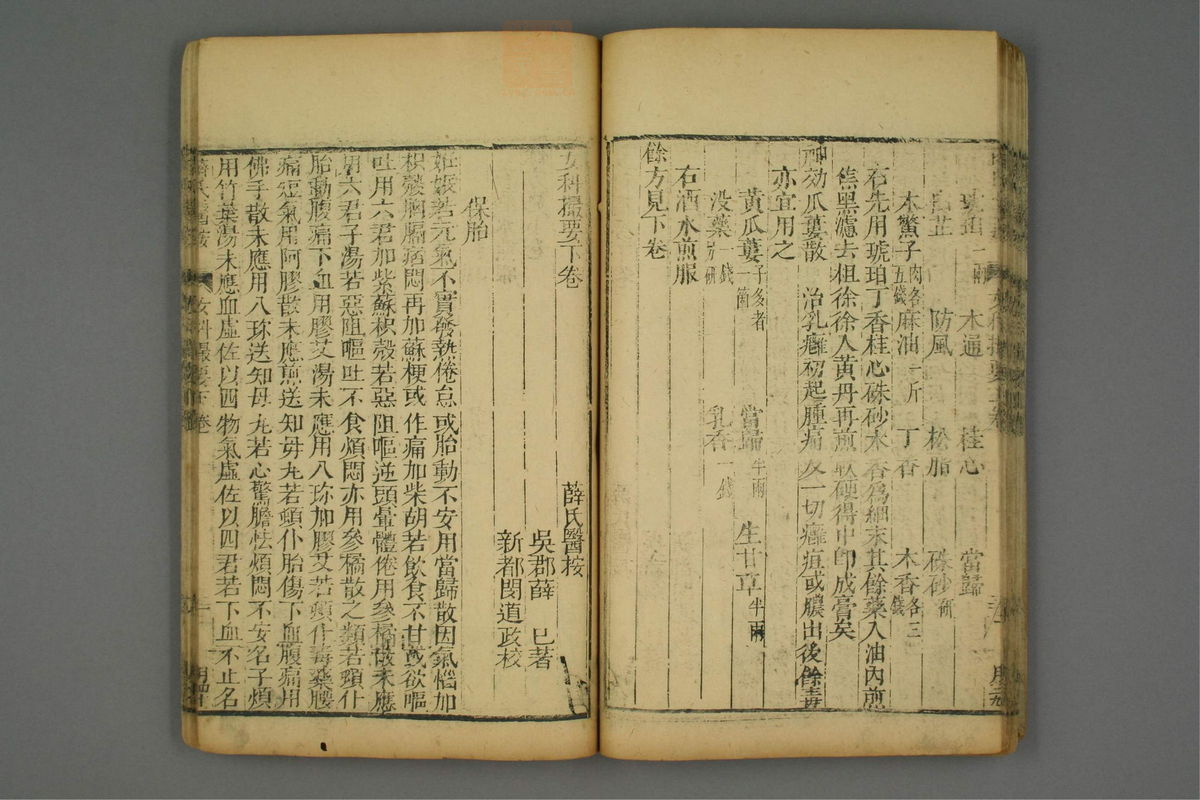 木通 桂心 當歸
白芷 防風 松脂 硃砂研
木鱉子肉各五錢 麻油一斤 丁香 木香各三錢
右先用琥珀丁香桂心硃砂木香爲細末其餘藥入油內煎
焦黑濾去柤徐徐入黃丹再煎軟硬得中卽成膏矣
神効瓜蔞散 治乳癰初起腫痛及一切癰疽或膿出後餘毒
亦宜用之
黃瓜蔞子多者一箇 當歸半兩 生甘草半兩
没藥一錢另研 乳香一錢
右酒水煎服
餘方見下卷
女科撮要下卷 薛氏醫按
吳郡薛 已著
新都閔道政校
保胎
妊娠若元氣不實發熱倦怠或胎動不安用當歸散因氣惱加
枳殼胸膈痞悶再加蘇梗或作痛加柴胡若飲食不甘或欲嘔
吐用六君加紫蘇枳殼若惡阻嘔逆頭暈體倦用參橘散未應
用六君子湯若惡阻嘔吐不食煩悶亦用參橘散之類若頓仆
胎動腹痛下血用膠艾湯未應用八珍加膠艾若頓仆毒藥腰
痛短氣用阿膠散未應煎送知母丸若頓仆胎傷下血腹痛用
佛手散未應用八珍送知母丸若心驚膽怯煩悶不安名子煩
用竹葉湯未應血虛佐以四物氣虛佐以四君若下血不止名
薛氏醫按 女科撮要下卷 一